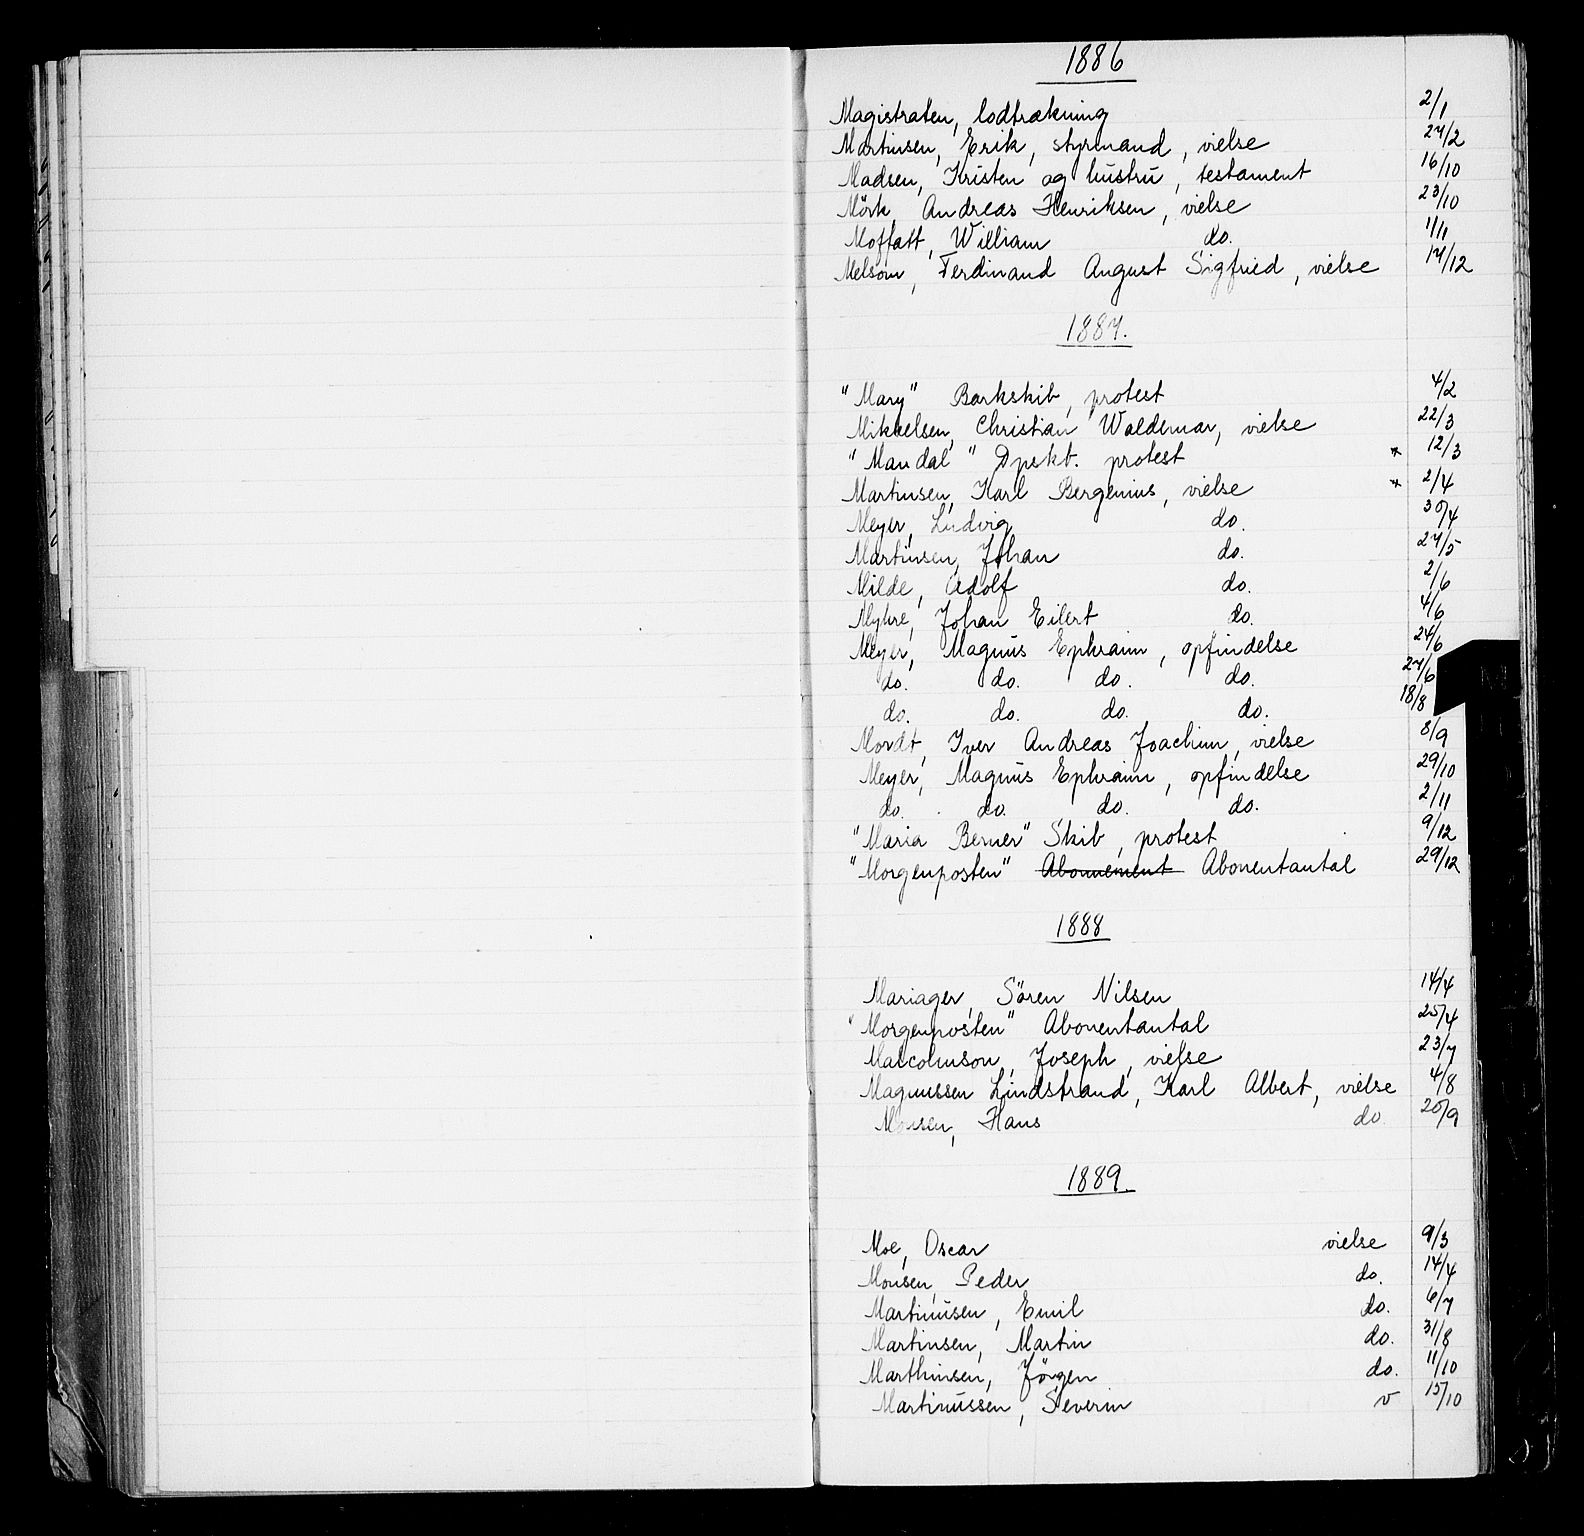 1886
Magistraten, lodtrækning 2/1
Martinsen, Erik, styrmand, vielse 27/2
Madsen, Kristen og hustru, testament 16/10
Mörk, Andreas Henriksen, vielse 23/10
Moffatt, William do. 1/11
Melsom, Ferdinand August Sigfried, vielse 17/12
1887.
"Mary" Barkskib, protest 4/2
Mikkelsen, Christian Waldemar, vielse 22/3
"Mandal" Dpskb. protest * 12/3
Martinsen, Karl Bergenius, vielse * 2/4
Meyer, Ludvig do. 30/4
Martinsen, Johan do. 27/5
Milde, Adolf do. 2/6
Myhre, Johan Eilert do. 4/6
Meyer, Magnus Ephraim, opfindelse 24/6
do. do. do. do. 27/6
do. do. do. do. 18/8
Mordt, Iver Andreas Joachim, vielse 8/9
Meyer, Magnus Ephraim, opfindelse 29/10
do. do. do. do. 2/11
"Maria Berner" Skib, protest 9/12
"Morgenposten" Abonnement Abonentantal 29/12
1888
Mariager, Sören Nilsen 14/4
"Morgenposten" Abonentantal 25/4
Malcolmson, Joseph, vielse 23/7
Magnussen Lindstrand, Karl Albert, vielse 4/8
Monsen, Hans do 20/9
1889.
Moe, Oscar vielse 9/3
Monsen, Peder do. 14/4
Martinusen, Emil do. 6/7
Martinsen, Martin do. 31/8
Marthinsen, Jörgen do. 11/10
Martinussen, Severin v 15/10